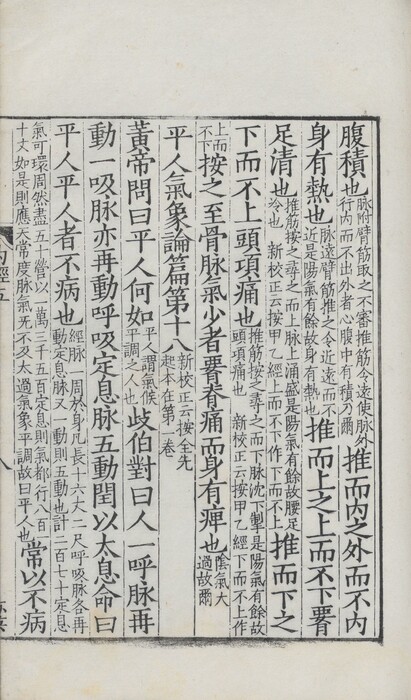 腹積也脉附臂筋取之不審推筋令遠使脉外行内而不出外者心腹中有積乃爾推而内之外而不内
身有熱也脉遠臂筋推之令近遠而不近是陽氣有餘故身有熱也推而上之上而不下䙅
足清也推筋按之尋之而上脉上涌盛是陽氣有餘故腰足冷也 新校正云按甲乙經上而不下作下而不上推而下之
下而不上頭項痛也推筋按之尋之而下脉沈下掣是陽氣有餘故頭項痛也 新校正云按甲乙經下而不上作
上而不下按之至骨脉氣少者䙅脊痛而身有痺也陰氣大過故爾
平人氣象論篇第十八新校正云按全元起本在第一卷
黃帝問曰平人何如平人謂氣候平調之人也歧伯對曰人一呼脉再
動一吸脉亦再動呼吸定息脉五動閏以太息命曰
平人平人者不病也經脉一周於身凡長十六丈二尺呼吸脉各再動定息脉又一動則五動也計二百七十定息
氣可環周然盡五十營以一萬三千五百定息則氣都行八百一十丈如是則應天常度脉氣无不及太過氣象平調故曰平人也常以不病